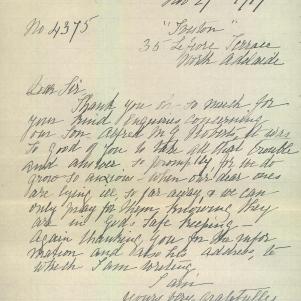 No 4375
"Touton"
35 LeFevre Terrace
North Adelaide
Dear Sir
Thank you so so much for
your kind enquiries concerning
our Son Alfred M G Roberts, it was
so good of you to take all that trouble
and answer so promptly for we do
grow so anxious when our dear ones
are lying ill so far away & we can
only pray for them knowing they
are in God's safe keeping –
Again thanking you for the infor
mation and also his address, to
which I am writing
I am
yours very gratefully